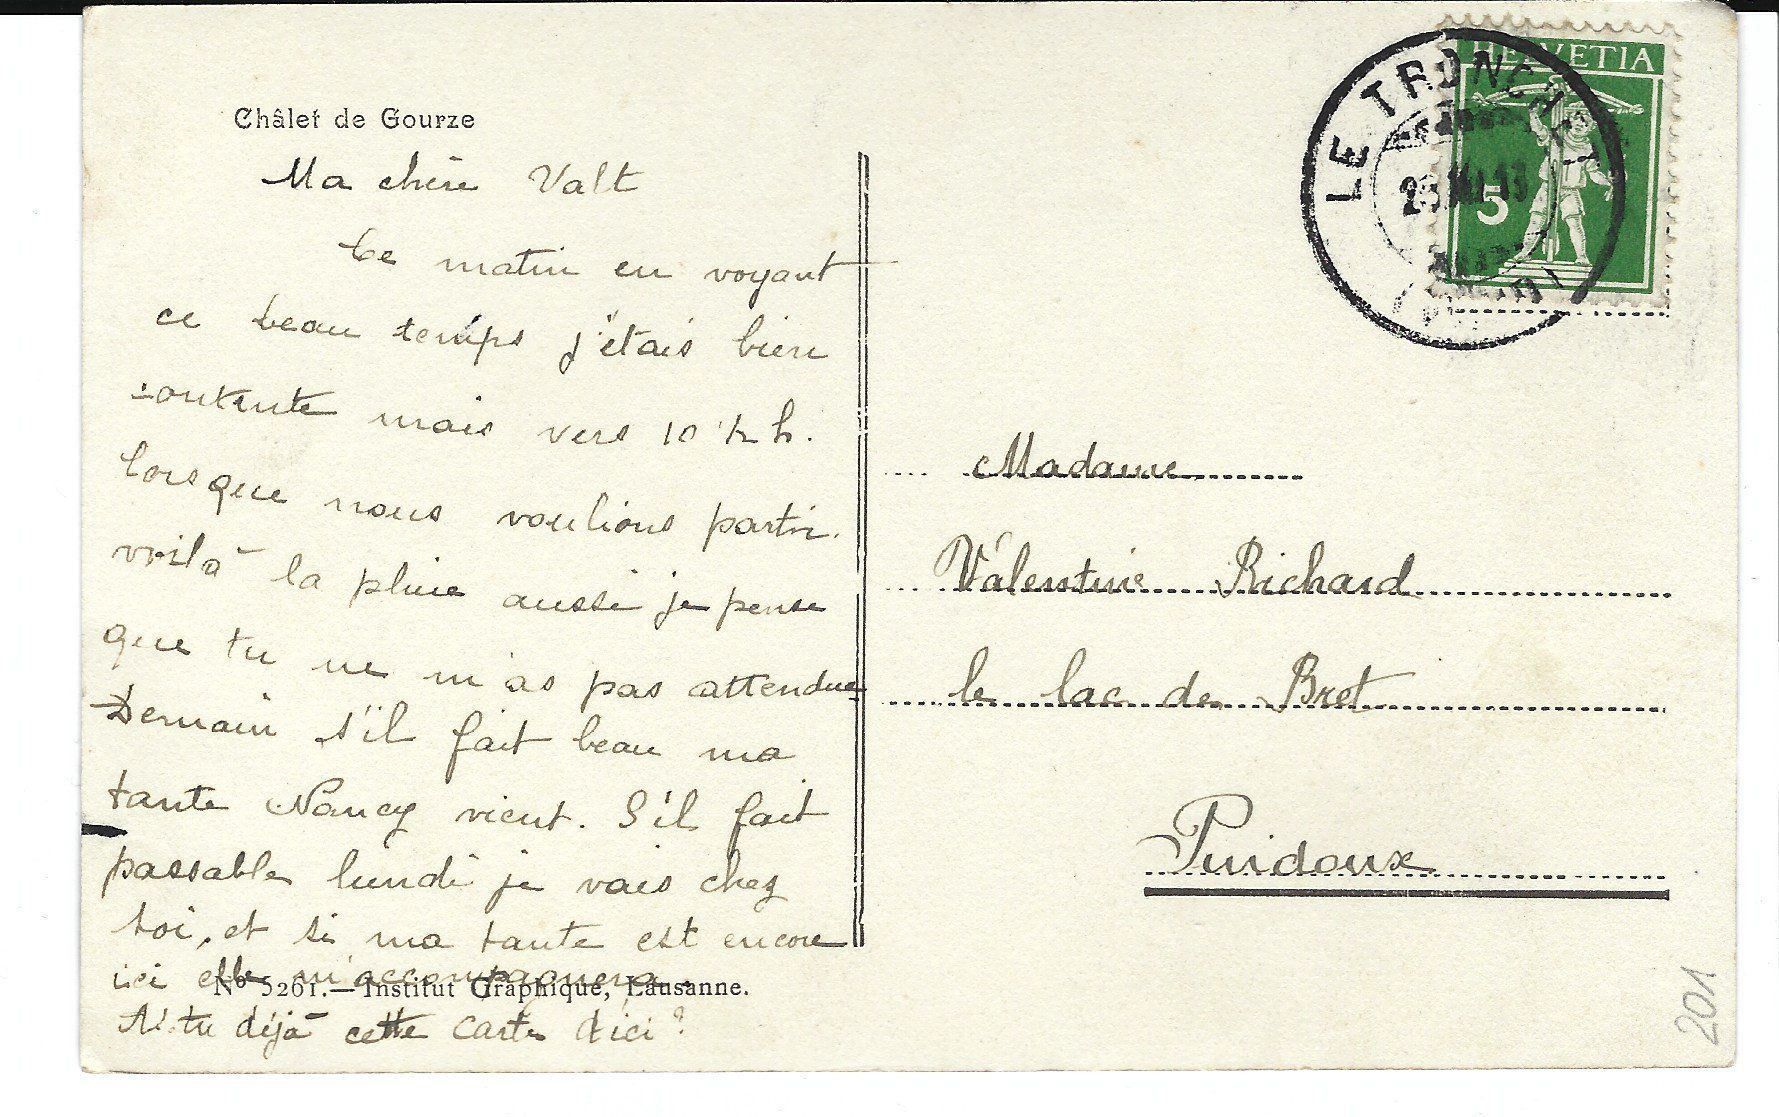 Châlet de Gourze
Ma chère Valt
Ce matin en voyant
ce beau temps j'étais bien
contente mais vers 10 1/2 h.
lorsque nous voulions partir.
voilà la pluie aussi je pense
que tu ne m'as pas attendue
Demain s'il fait beau ma
tante Nancy vient. S'il fait
passable lundi je vais chez
toi, et si ma tante est encore
ici elle m'accompagnera.
No 5261.— Institut Graphique, Lausanne.
As-tu déjà cette carte d'ici?
HELVETIA
5
LE TRONCHET
Madame
Valentine Richard
le lac de Bret
Puidoux
201